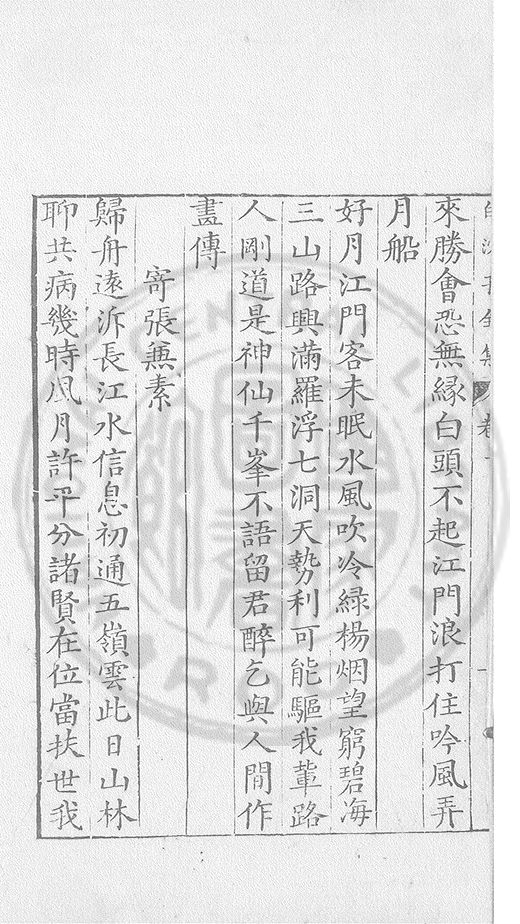 來勝會恐無緣白頭不起江門浪打住吟風弄
月船
好月江門客未眠水風吹冷緑楊烟望窮碧海
三山路興滿羅浮七洞天勢利可能驅我輩路
人剛道是神仙千峯不語留君醉乞與人間作
畫傳
寄張兼素
歸舟遠泝長江水信息初通五嶺雲此日山林
聊共病幾時風月許平分諸賢在位當扶世我